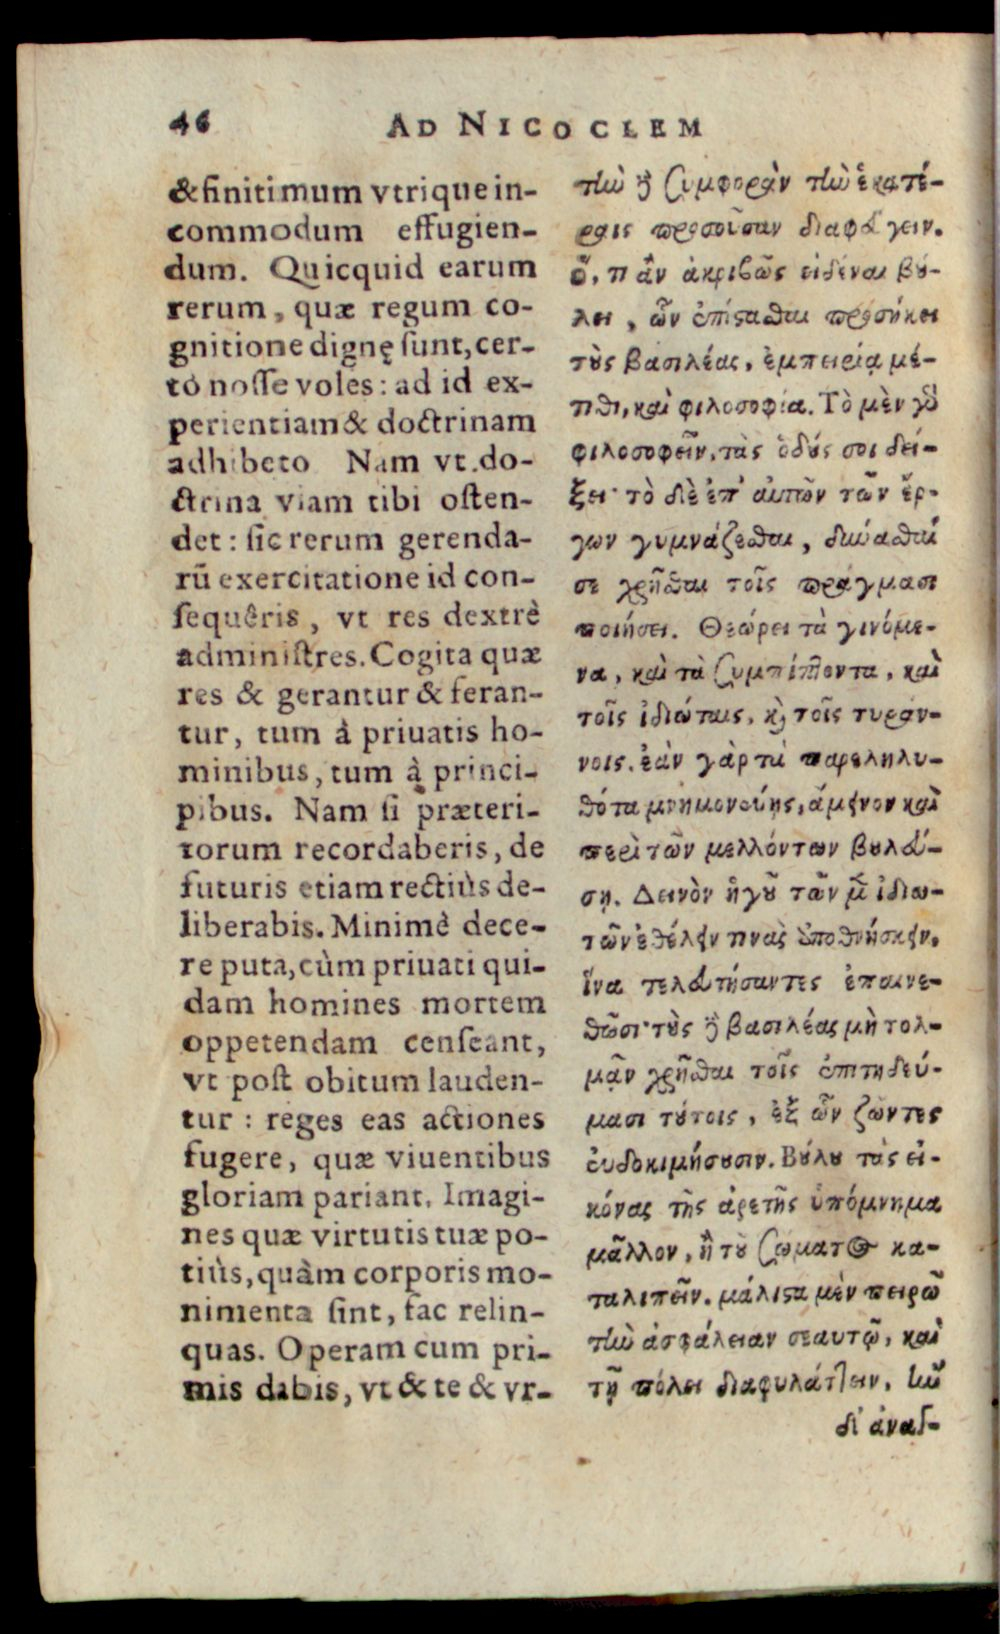 46 AD NICOCLEM
& finitimum vtrique in-
commodum effugien-
dum. Quicquid earum
rerum, quæ regum co-
gnitione dignę sunt, cer-
tò nosse voles: ad id ex-
perientiam & doctrinam
adhibeto Nam vt do-
ctrina viam tibi osten-
det: sic rerum gerenda-
rũ exercitatione id con-
sequêris, vt res dextrè
administres. Cogita quæ
res & gerantur & feran-
tur, tum à priuatis ho-
minibus, tum à princi-
pibus. Nam si præteri-
torum recordaberis, de
futuris etiam rectiùs de-
liberabis. Minimè dece-
re puta, cùm priuati qui-
dam homines mortem
oppetendam censeant,
vt post obitum lauden-
tur: reges eas actiones
fugere, quæ viuentibus
gloriam pariant. Imagi-
nes quæ virtutis tuæ po-
tiùs, quàm corporis mo-
nimenta sint, fac relin-
quas. Operam cum pri-
mis dabis, vt & te & vr-
τὴν δὲ συμφορὰν τὴν ἑκατέ-
ραις προσοῦσαν διαφεύγειν.
ὅ, τι ἂν ἀκριβῶς εἰδέναι βού-
λει, ὧν ἐπίστασθαι προσήκει
τοὺς βασιλέας, ἐμπειρία μέ-
τιθι, καὶ φιλοσοφία. Τὸ μὲν γὸ
φιλοσοφεῖν, τὰς ὁδούς σοι δεί-
ξει· τὸ δὲ ἐπ' αὐτῶν τῶν ἔρ-
γων γυμνάζεσθαι, δύνασθαί
σε χρῆσθαι τοῖς πράγμασι
ποιήσει. Θεώρει τὰ γινόμε-
να, καὶ τὰ συμπίπτοντα, καὶ
τοῖς ἰδιώταις, κὶ τοῖς τυράν-
νοις. ἐὰν γὰρ τὰ παρεληλυ-
θότα μνημονεύῃς, ἄμεινον καὶ
περὶ τῶν μελλόντων βουλεύ-
σῃ. Δεινὸν ἡγοῦ τῶν μὲν ἰδιω-
τῶν ἐθέλειν τινὰς ἀποθνήσκειν,
ἵνα τελευτήσαντες ἐπαινε-
θῶσι· τοὺς δὲ βασιλέας μὴ τολ-
μᾷν χρῆσθαι τοῖς ἐπιτηδεύ-
μασι τούτοις, ἐξ ὧν ζῶντες
εὐδοκιμήσουσιν. Βούλου τὰς εἰ-
κόνας τῆς ἀρετῆς ὑπόμνημα
μᾶλλον, ἢ τοῦ σώματος κα-
ταλιπεῖν. μάλιστα μὲν πειρῶ
τὴν ἀσφάλειαν σεαυτῷ, καὶ
τῇ πόλει διαφυλάττειν. ἢν
δι' ἀναγ-